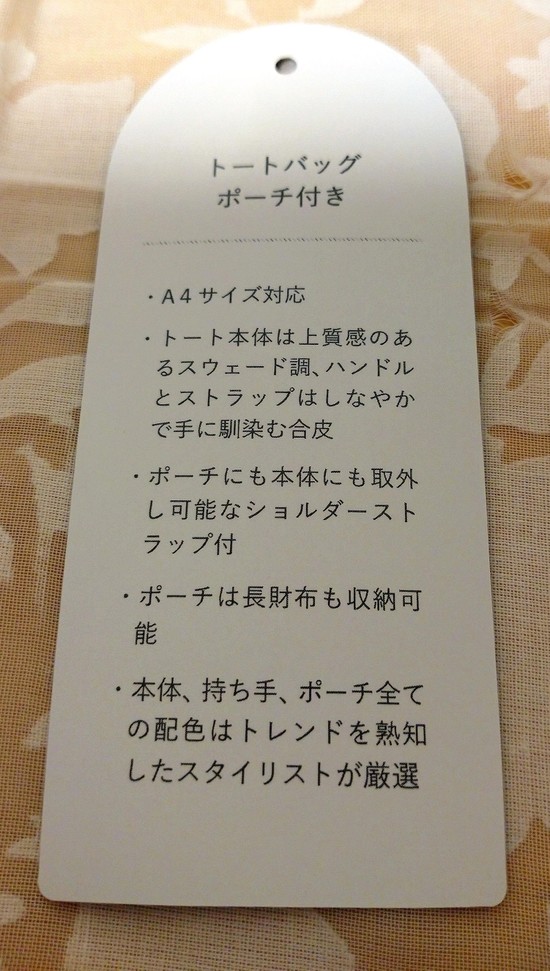 トートバッグ
ポーチ付き
・A4サイズ対応
・トート本体は上質感のあ
るスウェード調、ハンドル
とストラップはしなやか
で手に馴染む合皮
・ポーチにも本体にも取外
し可能なショルダースト
ラップ付
・ポーチは長財布も収納可
能
・本体、持ち手、ポーチ全て
の配色はトレンドを熟知
したスタイリストが厳選